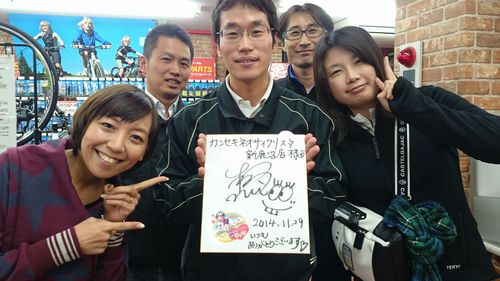 PARTS
カンセキネオサイクリスタ
新鹿沼店様江
2014.11.29
いつも
ありがとうございます
CASTELBAJAC